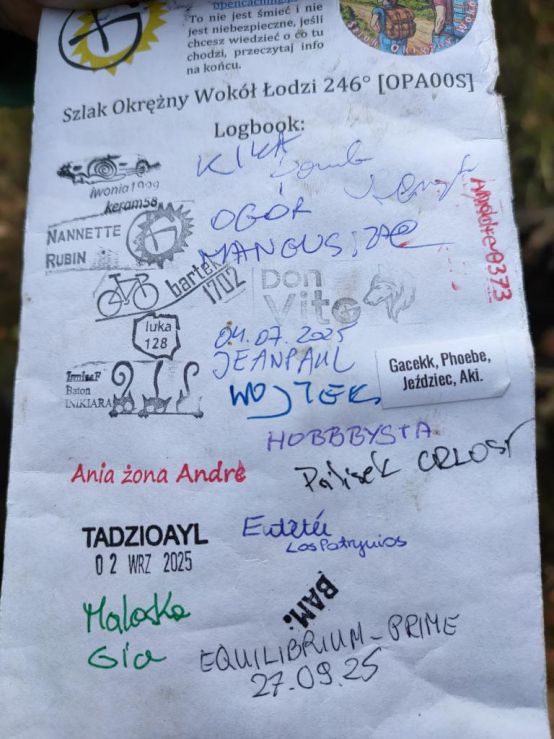 To nie jest śmieć i nie
jest niebezpieczne, jeśli
chcesz wiedzieć o co tu
chodzi, przeczytaj info
na końcu.
Szlak Okrężny Wokół Łodzi 246° [OPA00S]
Logbook:
iwonia1999
KIKA
keram58
NANNETTE
RUBIN
OGÓR
MANGUSIZAO
bartek
1702
Don
Vito
luka
128
04.07.2025
JEANPAUL
IrminaF
Baton
INIKIARA
WOJTEK
Gacekk, Phoebe,
Jeździec, Aki.
HOBBBYSTA
Ania żona Andre
ORLOSY
TADZIOAYL
02 WRZ 2025
LosPatrynios
Maloska
Gia
BAM:
EQUILIBRIUM-PRIME
27.09.25